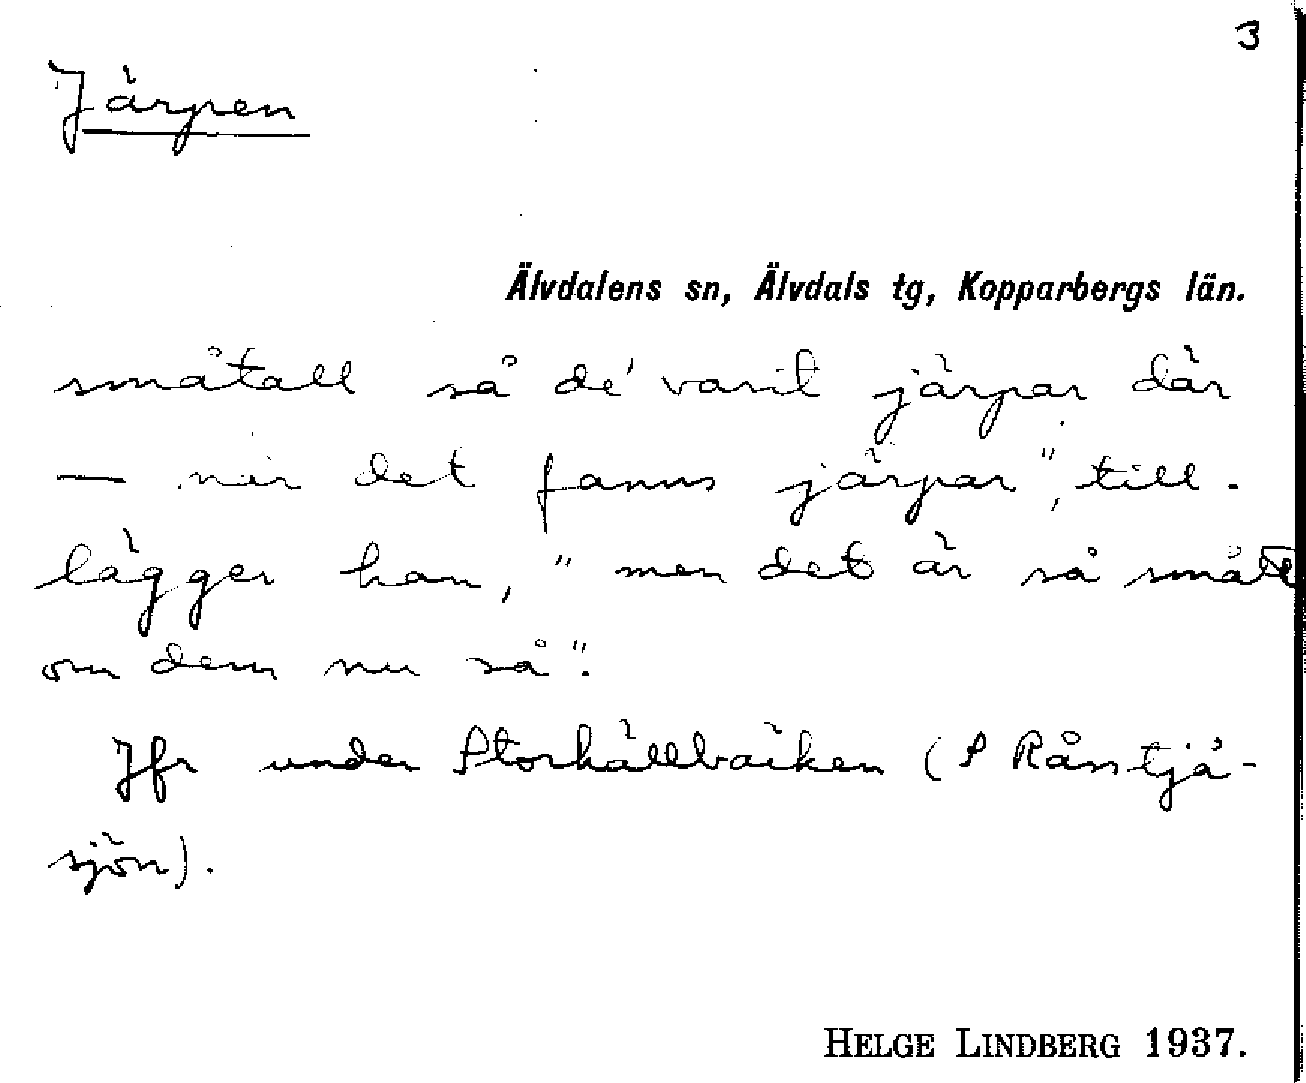 3
Järpen
Älvdalens sn, Älvdals tg, Kopparbergs län.
småtall så de' varit järpar där
— när det fanns järpar", till-
lägger han, "men det är så smått
om dem nu så".
Jfr under Storhällbäcken (S Råntjä-
sjön).
HELGE LINDBERG 1937.